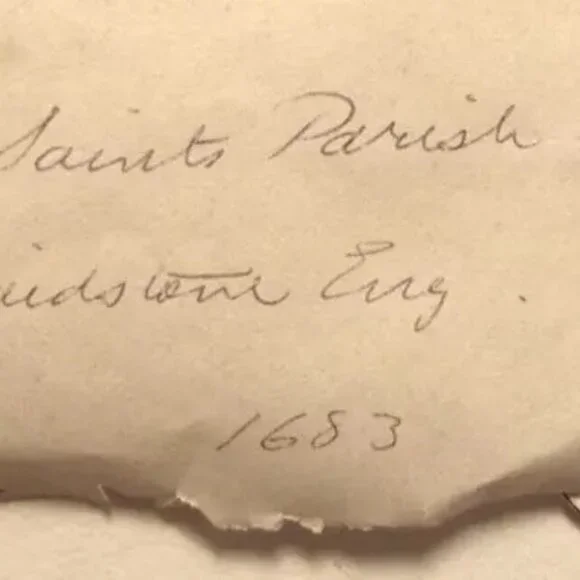 Saints Parish
idstone Eng.
1683